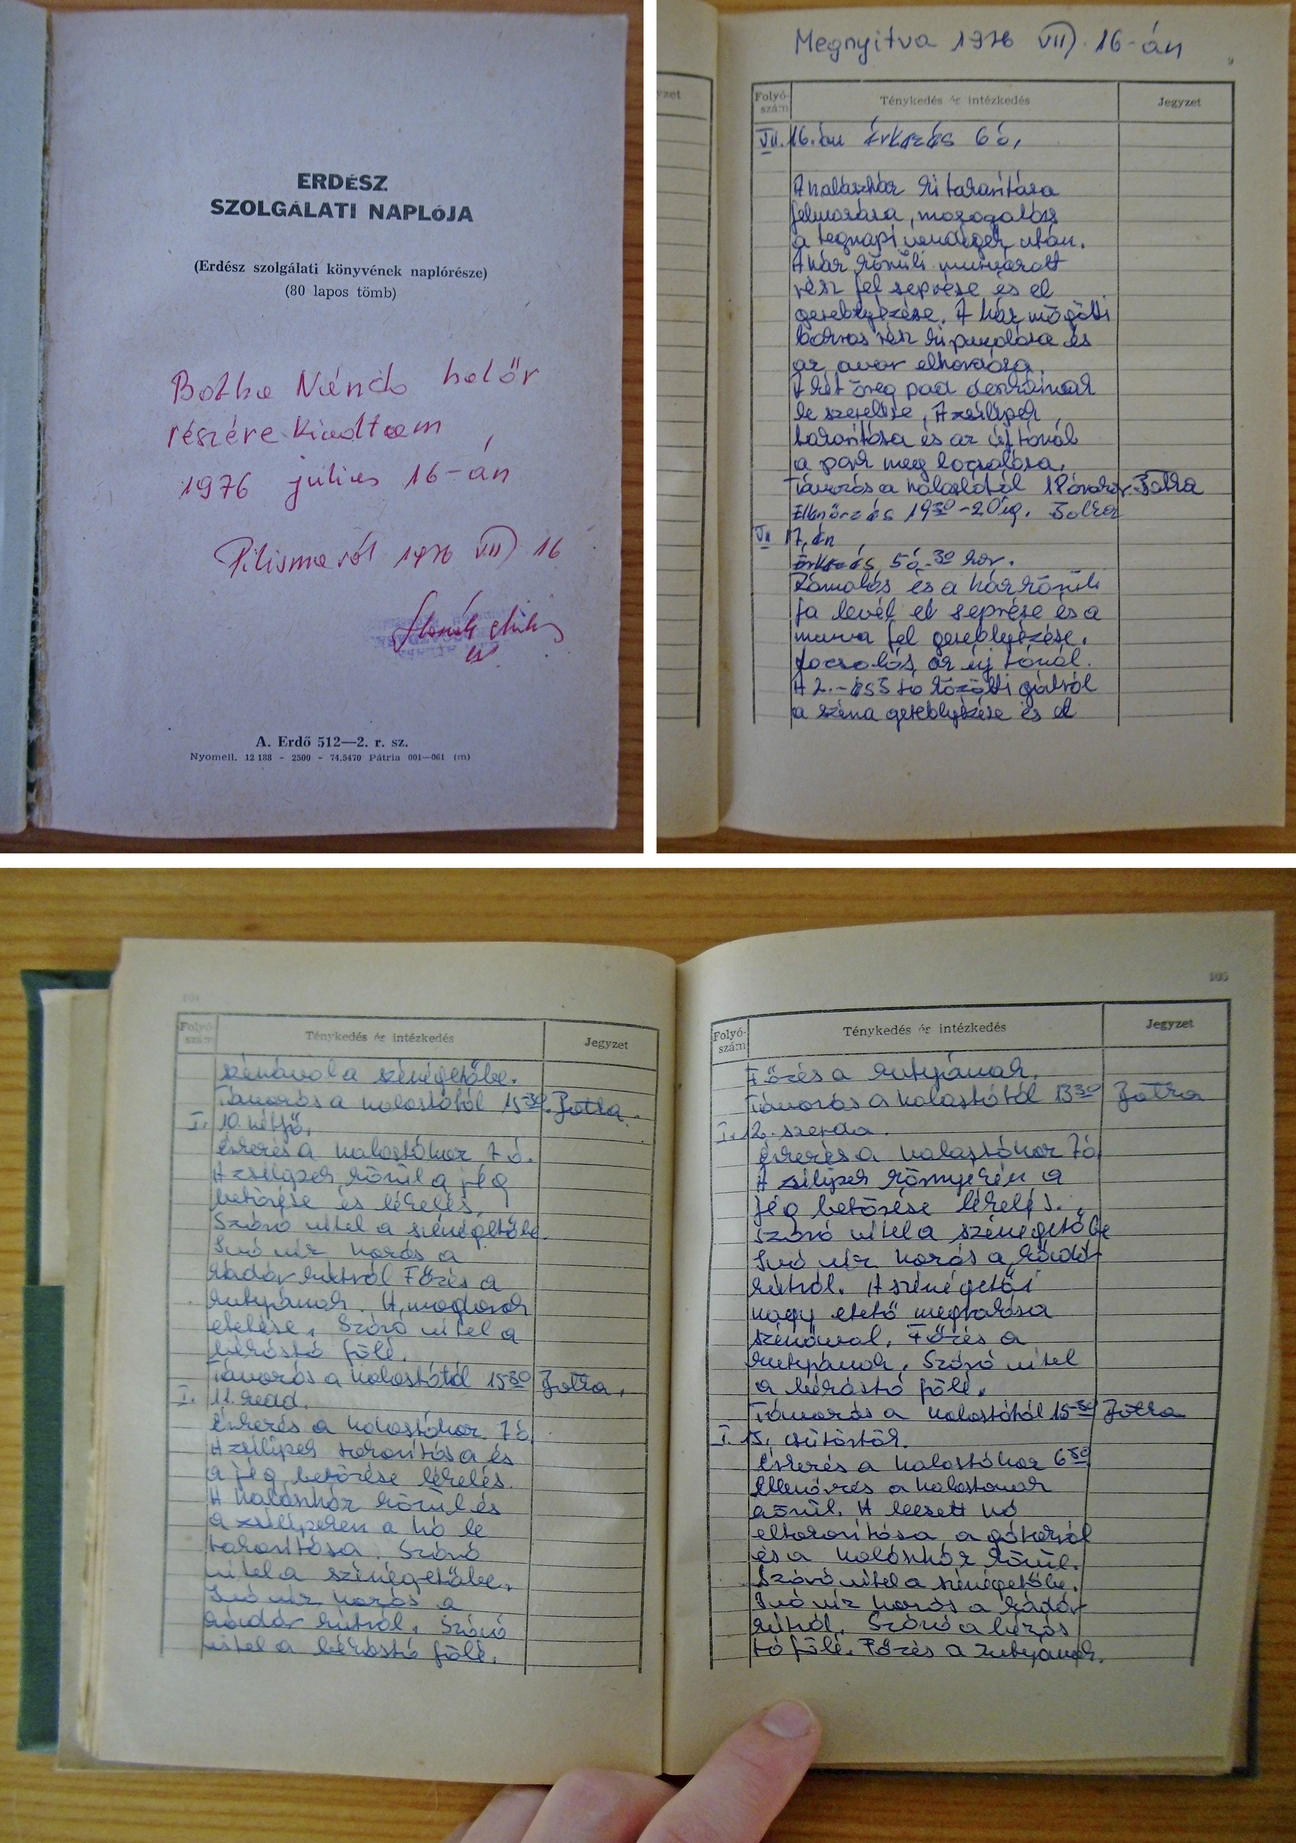 ERDÉSZ
SZOLGÁLATI NAPLÓJA
(Erdész szolgálati könyvének naplórésze)
(80 lapos tömb)
Botka Nándo halőr
részére kiadtam
1976 július 16-án
Pilismarót 1976 VII) 16
A. Erdő 512—2. r. sz.
Nyomell. 12 188 - 2500 - 74.5470 Pátria 001—061 (m)
Megnyitva 1976 VII). 16-án
9
yzet
Folyó-
szám
Ténykedés és intézkedés
Jegyzet
VII. 16.-án érkezés 6 ó,
A halászház ki takarítása
felmosása, mosogatás
a tegnapi vendégek után.
A ház körüli murvázott
rész fel seprése és el
gereblyézése. A ház mögötti
bokros rész ki pucolása és
az avar elhordása.
A két öreg pad deszkáinak
le szerelése, A zsilipek
takarítása és az új tónál
a part meg locsolása.
Távozás a halastótól 18 órakor. Botka
Ellenőrzés 19 30 - 20 ig. Botka
VII 17.-én
érkezés 5 ó. 30 kor.
Zámolás és a ház körüli
fa levél el seprése és a
murva fel gereblyézése.
Locsolás az új tónál.
A 2.- és 3 tó közötti gátról
a széna gereblyézése és el
104
Folyó-
szám
Ténykedés és intézkedés
Jegyzet
szénával a szénégetőbe.
Távozás a halastótól 15 30. Botka.
I. 10. hétfő.
Érkezés a halastóhoz 7 ó.
A zsilipek körül a jég
betörése és lékelés.
Szóró vitel a szénégetőbe.
Ivó víz hozás a
rádár kútról Főzés a
kutyának. A magtorok
etetése. Szóró vitel a
kérástó fölé.
Távozás a halastótól 15 30 Botka.
I. 11. kedd.
Érkezés a halastóhoz 7 ó.
A zsilipek takarítása és
a jég betörése lékelés.
A halászház körül és
a zsilipeken a hó le
takarítása. Szóró
vitel a szénégetőbe.
Ivó víz hozás a
rádár kútról. Szóró
vitel a kérástó fölé.
105
Folyó-
szám
Ténykedés és intézkedés
Jegyzet
Főzés a kutyának.
Távozás a halastótól 13 30 Botka
I. 12. szerda.
Érkezés a halastóhoz 7 ó
A zsilipek környékén a
jég betörése lékelés.
Szóró vitel a szénégetőbe
Ivó víz hozás a rádár
kútról. A szénégetői
nagy etető megrakása
szénával. Főzés a
kutyának. Szóró vitel
a kérástó fölé.
Távozás a halastótól 15 30 Botka
I. 13. csütörtök.
Érkezés a halastóhoz 6 30
Ellenőrzés a halastavak
körül. A leesett hó
eltakarítása a gátakról
és a halászház körül.
Szóró vitel a szénégetőbe.
Ivó víz hozás a rádár
kútról. Szóró a kérás
tó fölé. Főzés a kutyának.